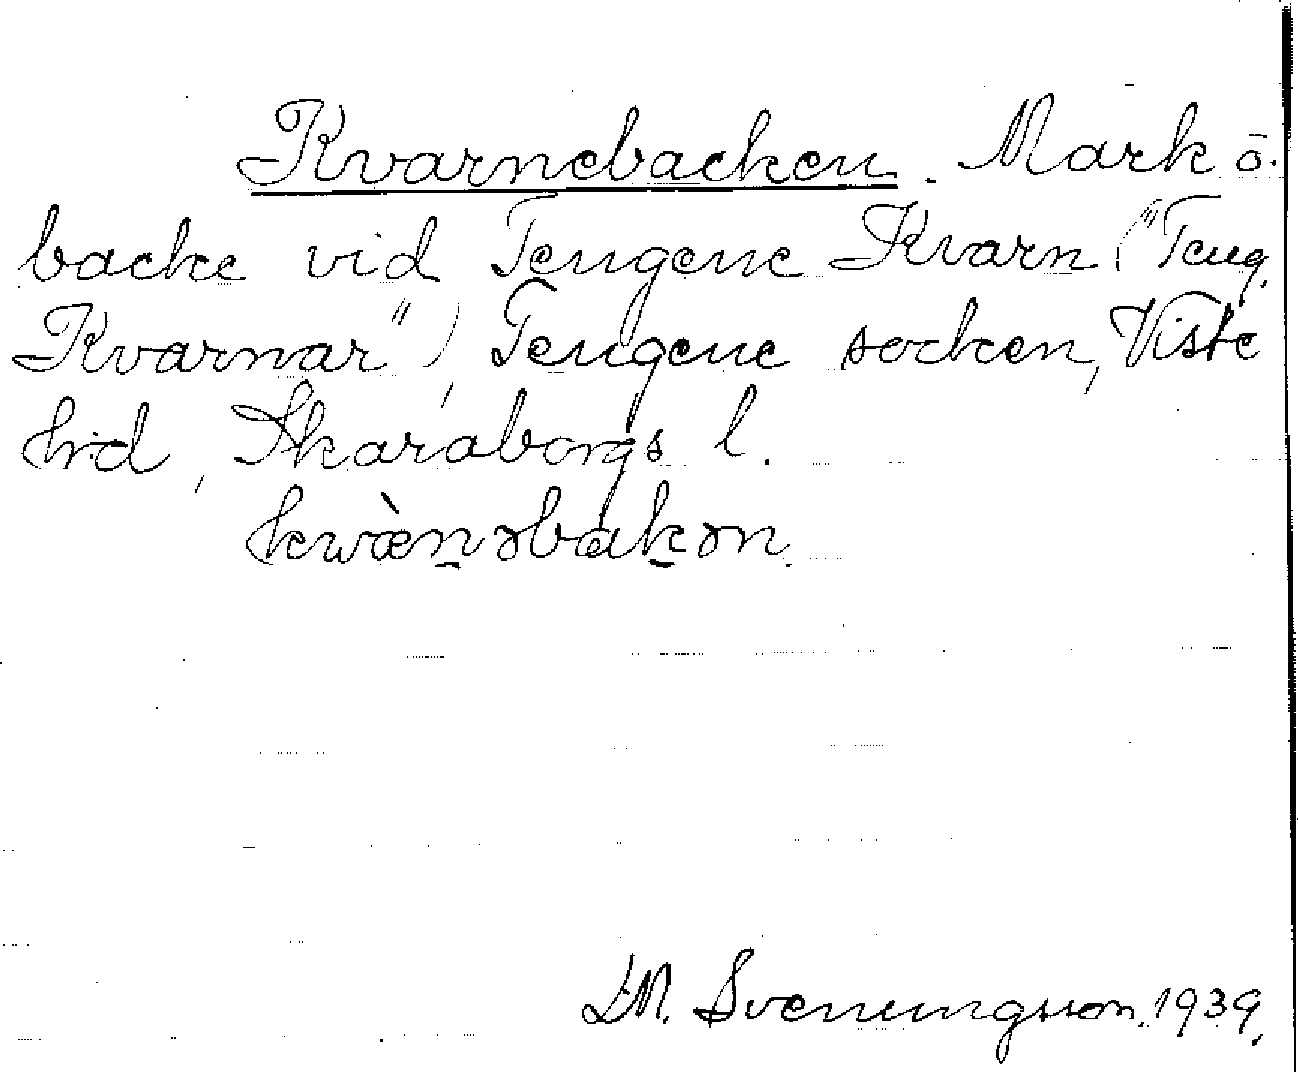 Kvarnebacken. Mark o.
backe vid Tengene Kvarn ("Teng.
Kvarnar"), Tengene socken, Viste
hrd, Skaraborgs l.
kwæ̀nəbakən.
Svenungsson. 1939.